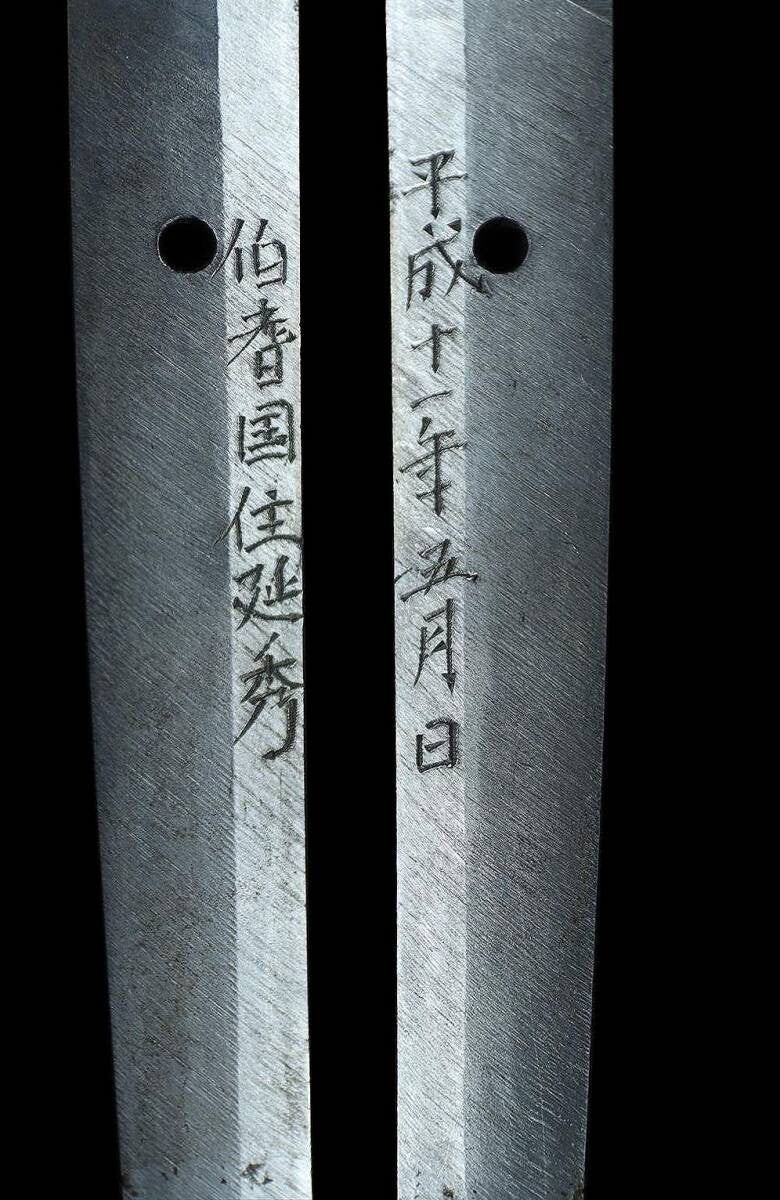 伯耆国住延秀
平成十一年五月日